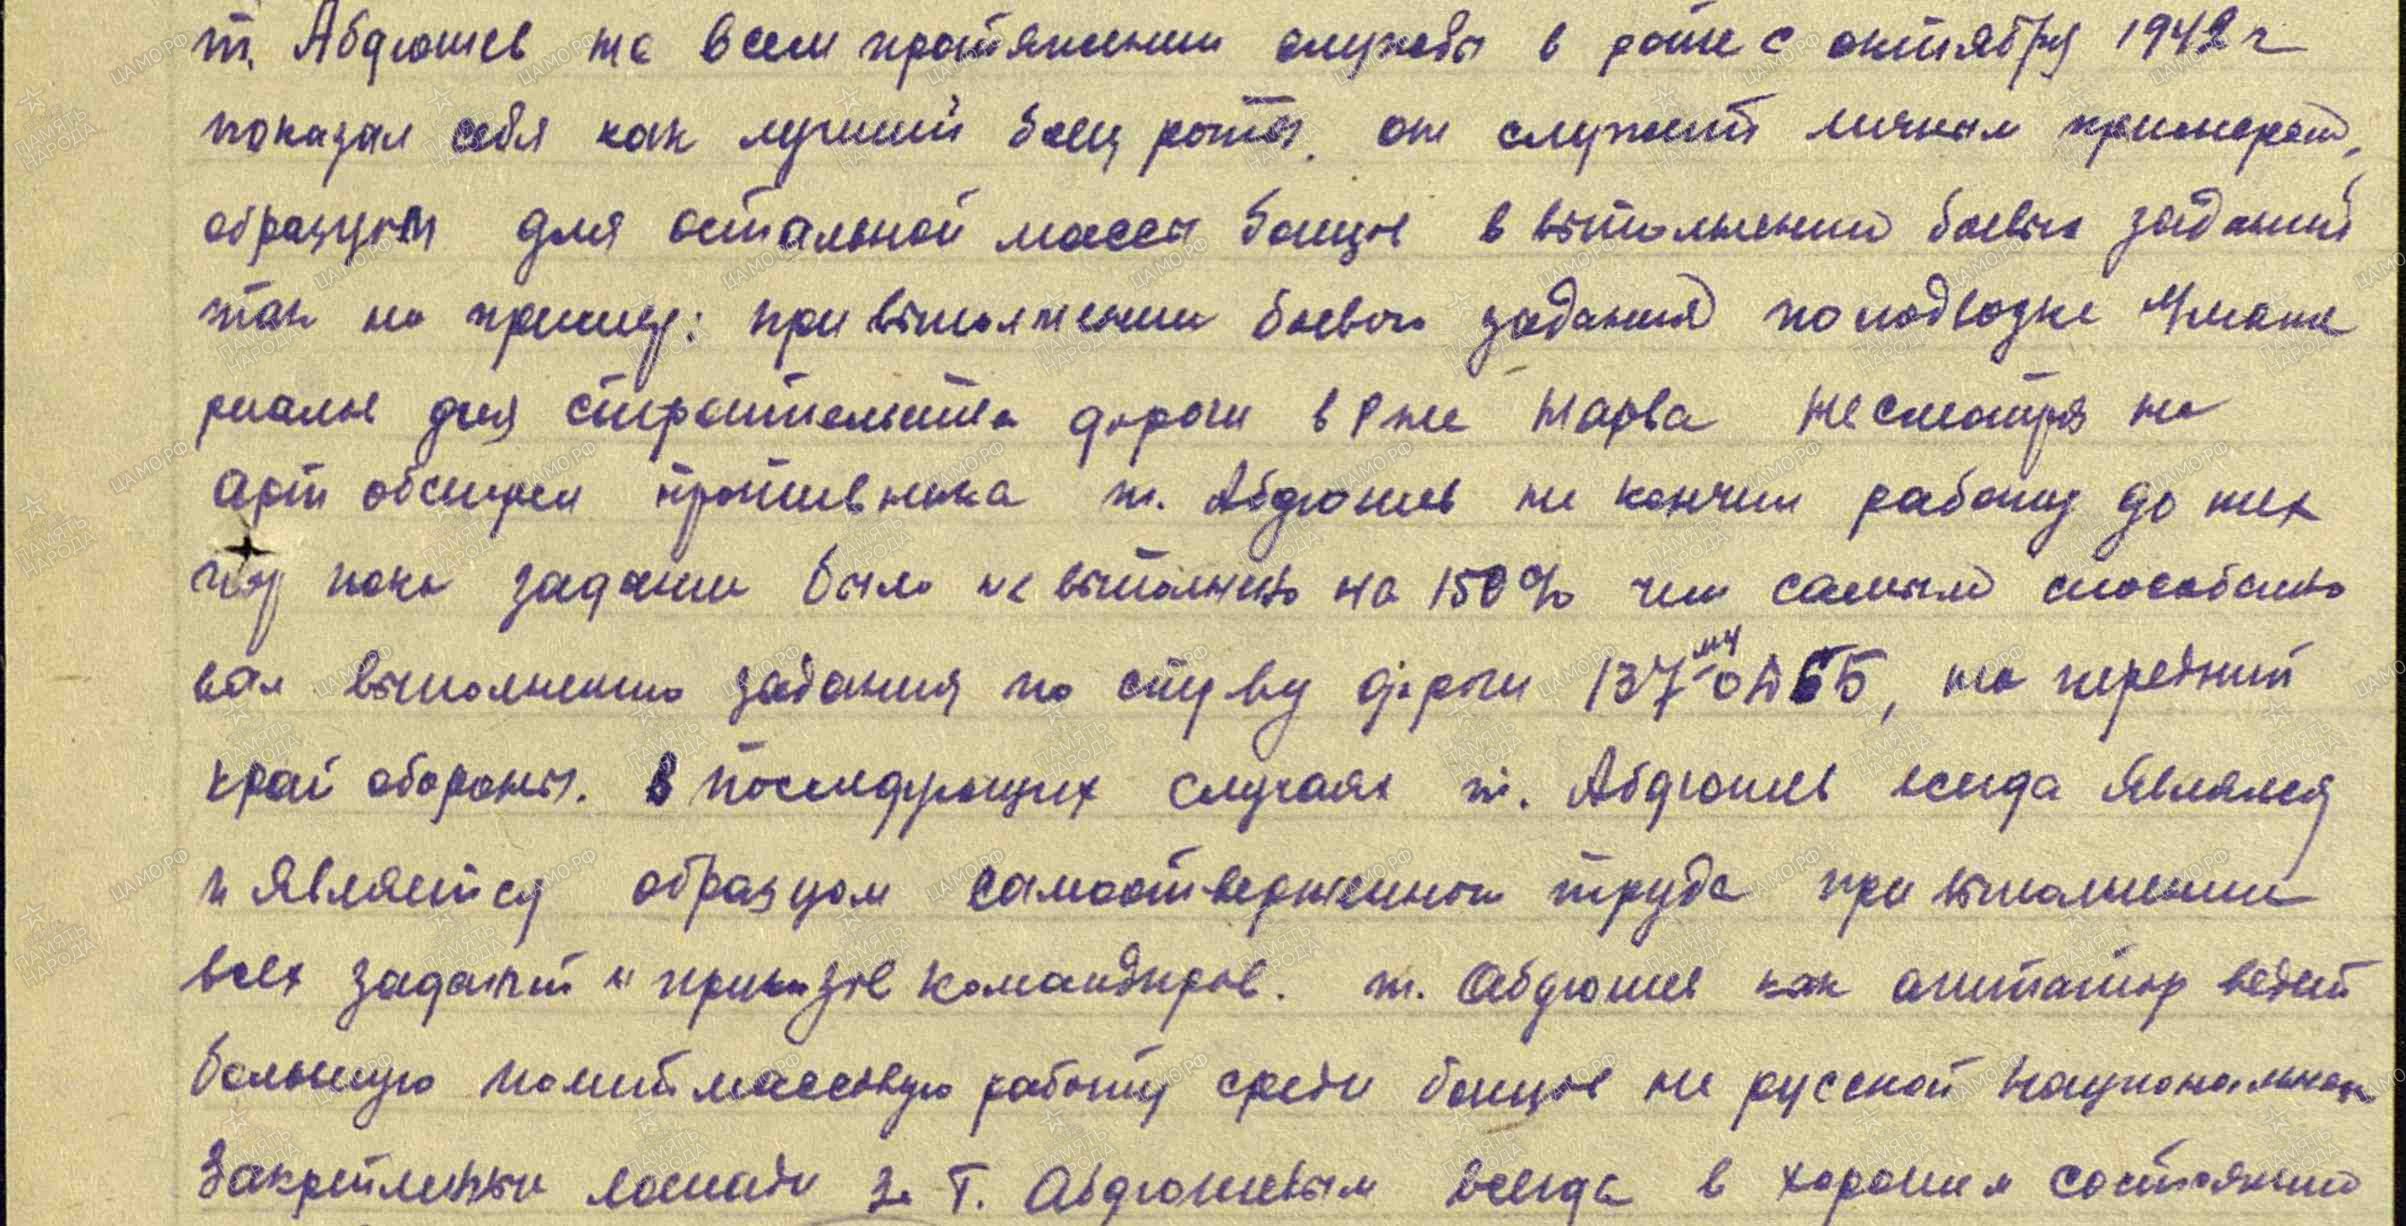 т. Абдюшев на всем протяжении службы в роте с октября 1942 г
показал себя как лучший боец роты. он служит личным примером,
образцом для остальной массы бойцов в выполнении боевых заданий
так на пример: при выполнении боевого задания по подвозке
риалов для строительства дороги в р-не Нарва несмотря на
арт обстрел противника т. Абдюшев не кончил работу до тех
пор пока задание было не выполнено на 150% тем самым способство
вал выполнению задания по стр-ву дороги 137му ОДСБ, на передний
край обороны. в последующих случаях т. Абдюшев всегда являлся
и является образцом самоотверженного труда при выполнении
всех заданий и приказов командиров. т. Абдюшев как агитатор ведет
большую политмассовую работу среди бойцов не русской национальности
Закрепленные лошади за Т. Абдюшевым всегда в хорошем состоянии
ЦАМО.РФ
ПАМЯТЬ НАРОДА